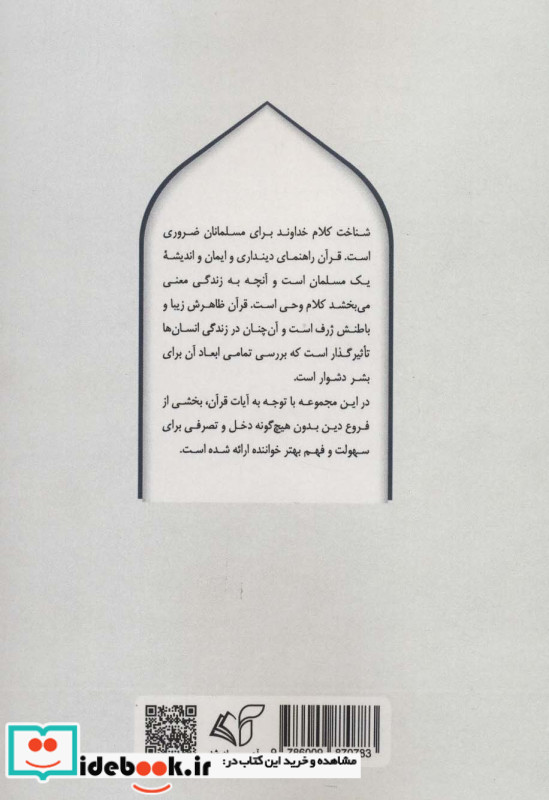 شناخت کلام خداوند برای مسلمانان ضروری
است. قرآن راهنمای دینداری و ایمان و اندیشهٔ
یک مسلمان است و آنچه به زندگی معنی
می‌بخشد کلام وحی است. قرآن ظاهرش زیبا و
باطنش ژرف است و آن‌چنان در زندگی انسان‌ها
تأثیرگذار است که بررسی تمامی ابعاد آن برای
بشر دشوار است.
در این مجموعه با توجه به آیات قرآن، بخشی از
فروع دین بدون هیچ‌گونه دخل و تصرفی برای
سهولت و فهم بهتر خواننده ارائه شده است.
9 786009 870783
مشاهده و خرید این کتاب در:
idebook.ir